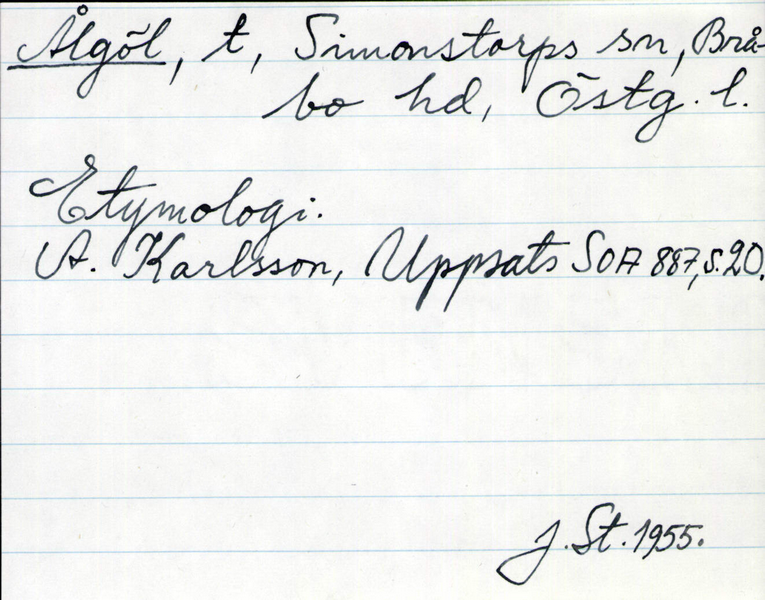 Ålgöl, t, Simonstorps sn, Brå-
bo hd, Östg. l.
Etymologi.
A. Karlsson, Uppsats SOA 887, s. 20.
J. St. 1955.